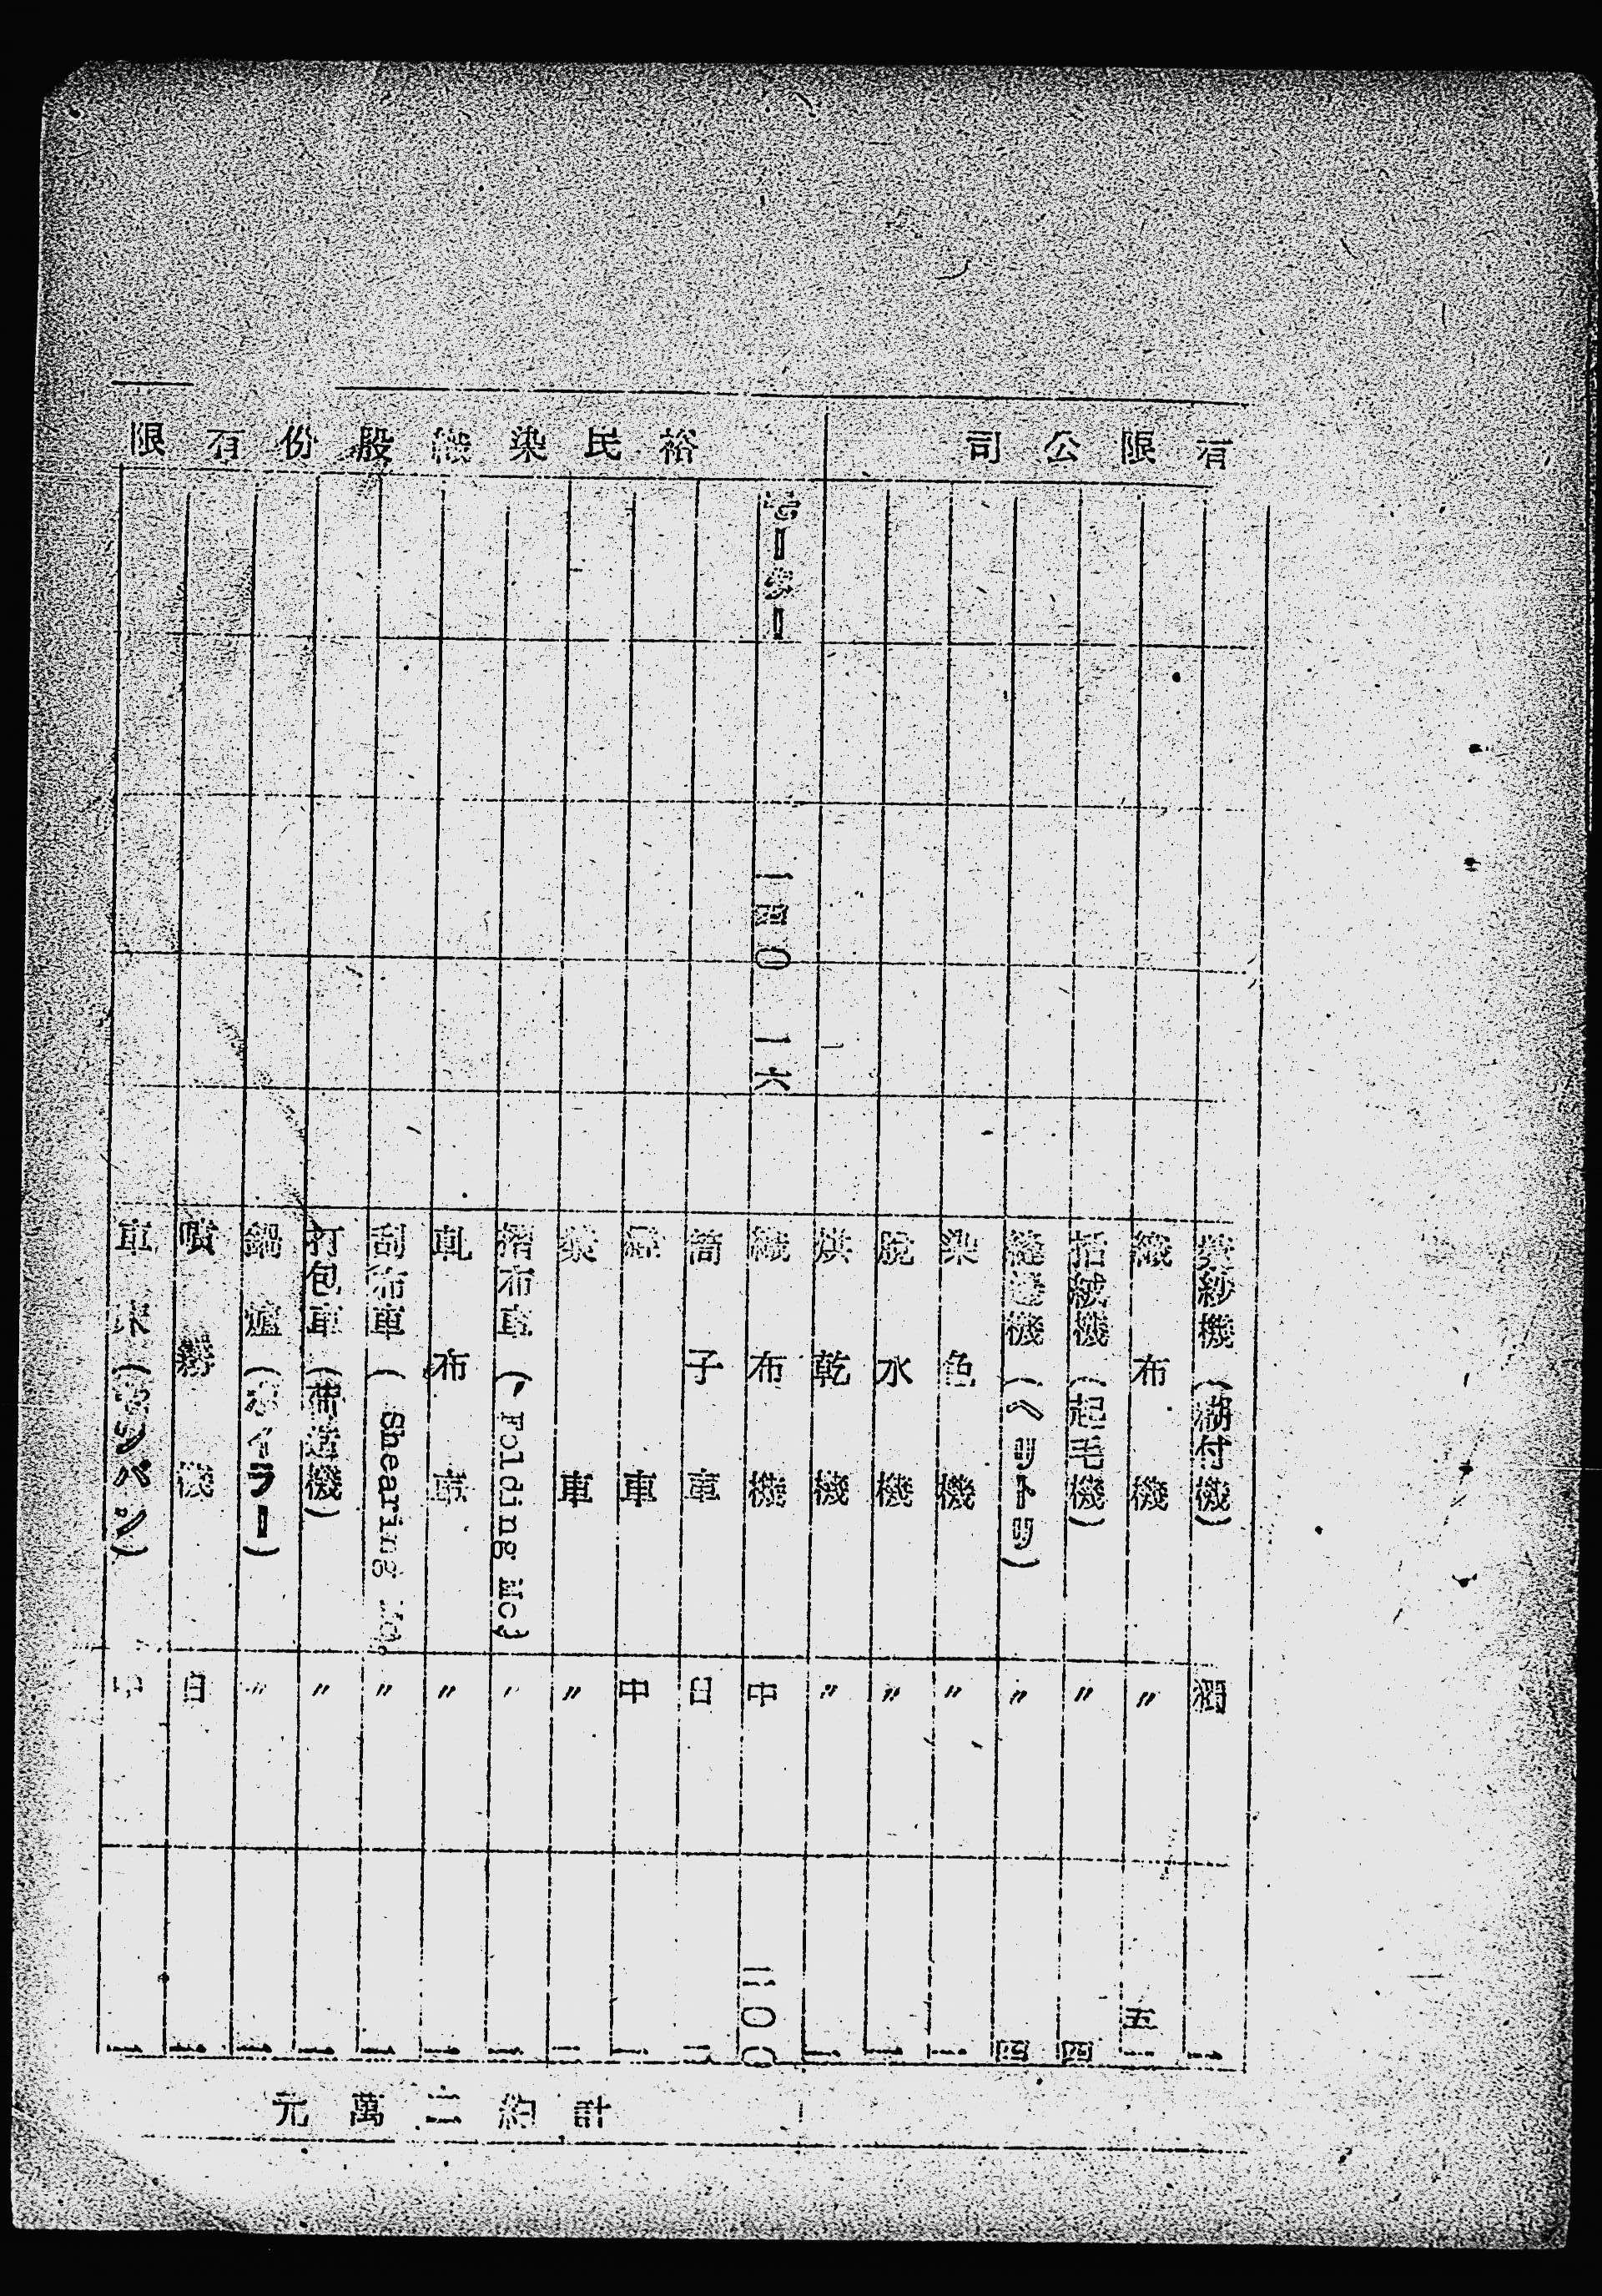 有限公司
漿紗機(糊付機) 獨 一
織布機 〃 五一
括絨機(起毛機) 〃 四
縫邊機(ヘリトリ) 〃 四
染色機 〃 一
脱水機 〃 一
烘乾機 〃 一
裕民染織股份有限
モーター 一四〇 1K 織布機 中 二〇〇
筒子車 日 二
車 中 一
漿車 〃 一
摺布車(Folding Mc) 〃 一
軋布車 〃 一
刮布車(Shearing Mc. 〃 一
打包車(荷造機) 〃 一
鍋爐(ボイラー) 〃 一
噴霧機 日 一
車床(センバン) 中 一
計約二萬元